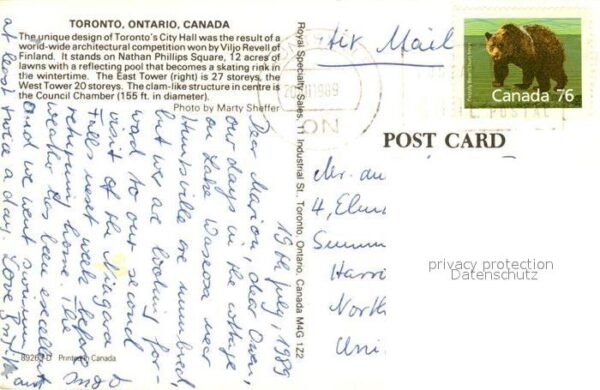 TORONTO, ONTARIO, CANADA
The unique design of Toronto's City Hall was the result of a
world-wide architectural competition won by Viljo Revell of
Finland. It stands on Nathan Phillips Square, 12 acres of
lawns with a reflecting pool that becomes a skating rink in
the wintertime. The East Tower (right) is 27 storeys, the
West Tower 20 storeys. The clam-like structure in centre is
the Council Chamber (155 ft. in diameter).
Photo by Marty Sheffer
19th July, 1989
Dear Marion, dear Owen,
our days in the cottage
on Lake Waseosa near
Huntsville are numbered,
but we are looking for-
ward to our second
visit of the Niagara
Falls next week before
returning home. The
weather has been excellent
and we went swimming
at least twice a day. Love
89263-D Printed in Canada
Royal Specialty Sales, 11 Industrial St., Toronto, Ontario, Canada M4G 1Z2
Air Mail
1989
ON
POSTAL
Canada 76
POST CARD
Mr. an
4, Elm
Summ
Harri
North
Uni
privacy protection
Datenschutz